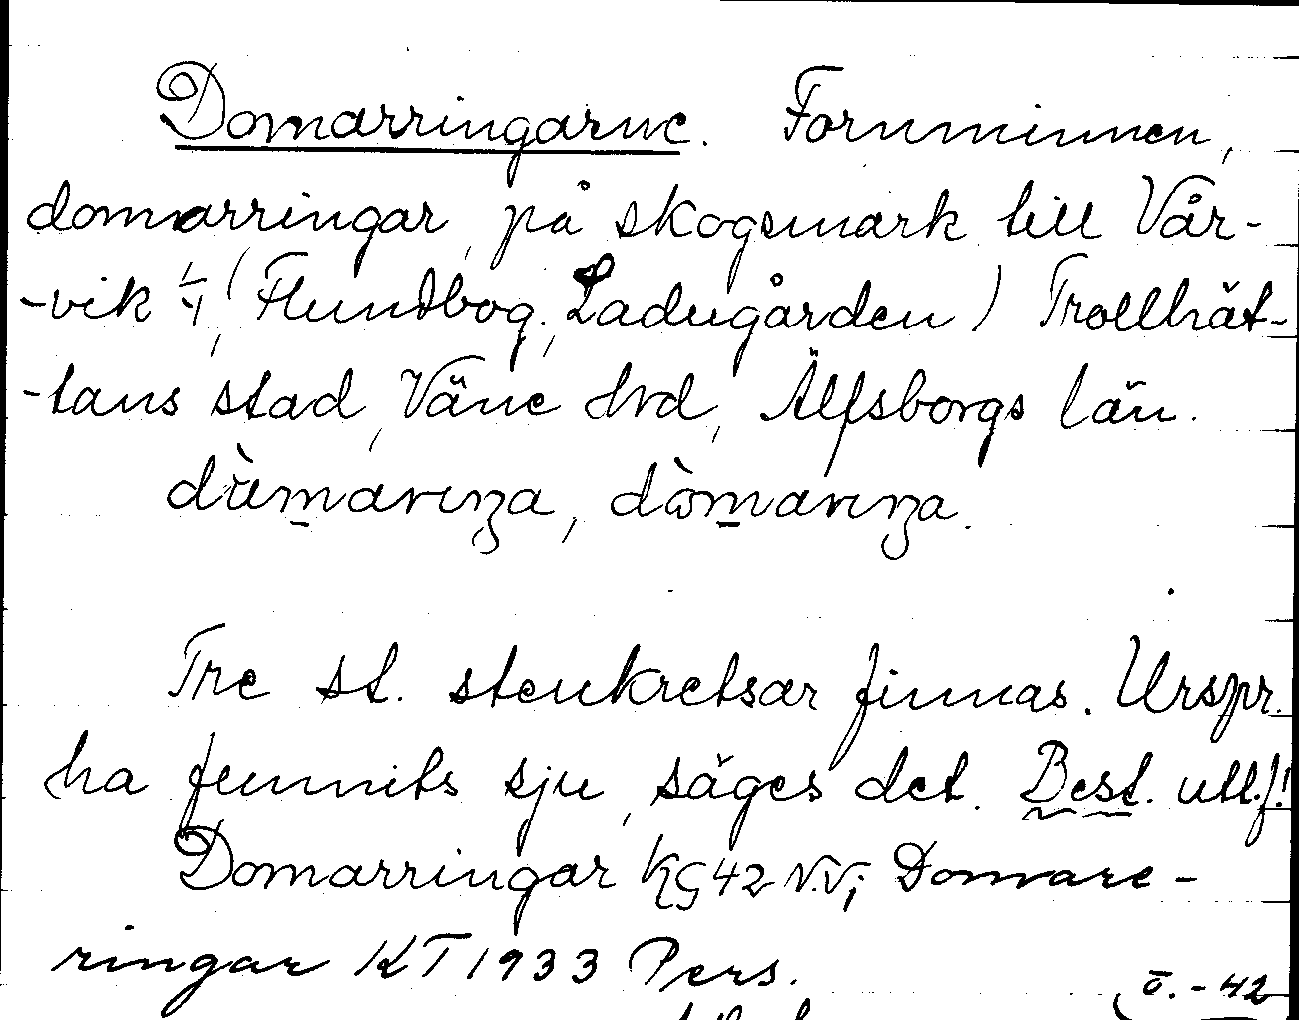 Domarringarne. Fornminnen,
domarringar, på skogsmark till Vår-
-vik 1/4, (Flundbog, Ladugården) Trollhät-
-tans stad, Väne hrd, Älfsborgs län.
Tre st. stenkretsar finnas. Urspr.
ha funnits sju, säges det. Best. utt.f!
Domarringar KG 42 N.V; Domare-
ringar KT 1933 Pers.
-42